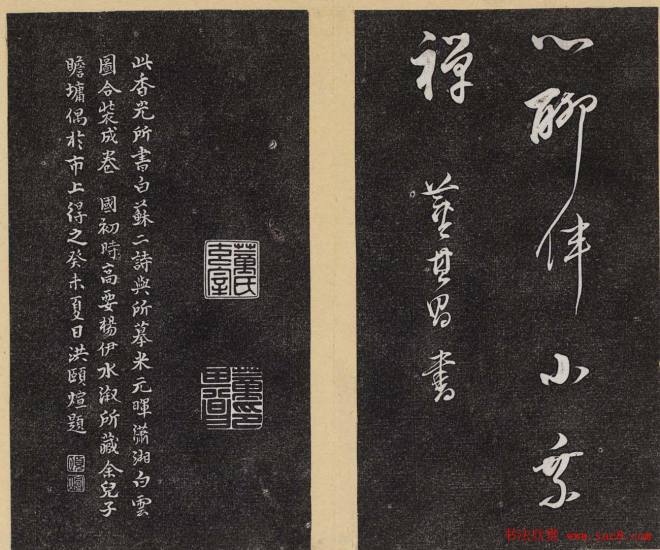 心聊伴小乘
禪
董其昌書
董氏玄宰
董其昌印
此香光所書白蘇二詩與所摹米元暉瀟湘白雲
圖合裝成卷 國初時高要楊伊水淑所藏余兒子
瞻墉偶於市上得之癸未夏日洪頤煊題
书法欣赏 www.sac8.com